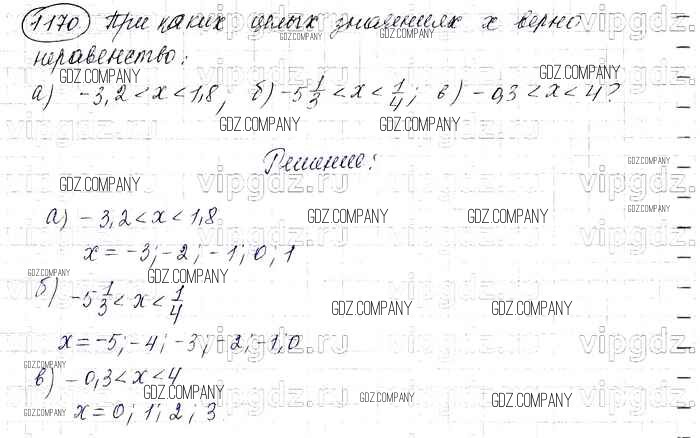 1170 При каких целых значениях x верно
неравенство:
а) -3,2 < x < 1,8; б) -5 1/3 < x < 1/4; в) -0,3 < x < 4?
Решение:
а) -3,2 < x < 1,8
x = -3; -2; -1; 0; 1
б) -5 1/3 < x < 1/4
x = -5; -4; -3; -2; -1; 0
в) -0,3 < x < 4
x = 0; 1; 2; 3
GDZ.COMPANY
vipgdz.ru